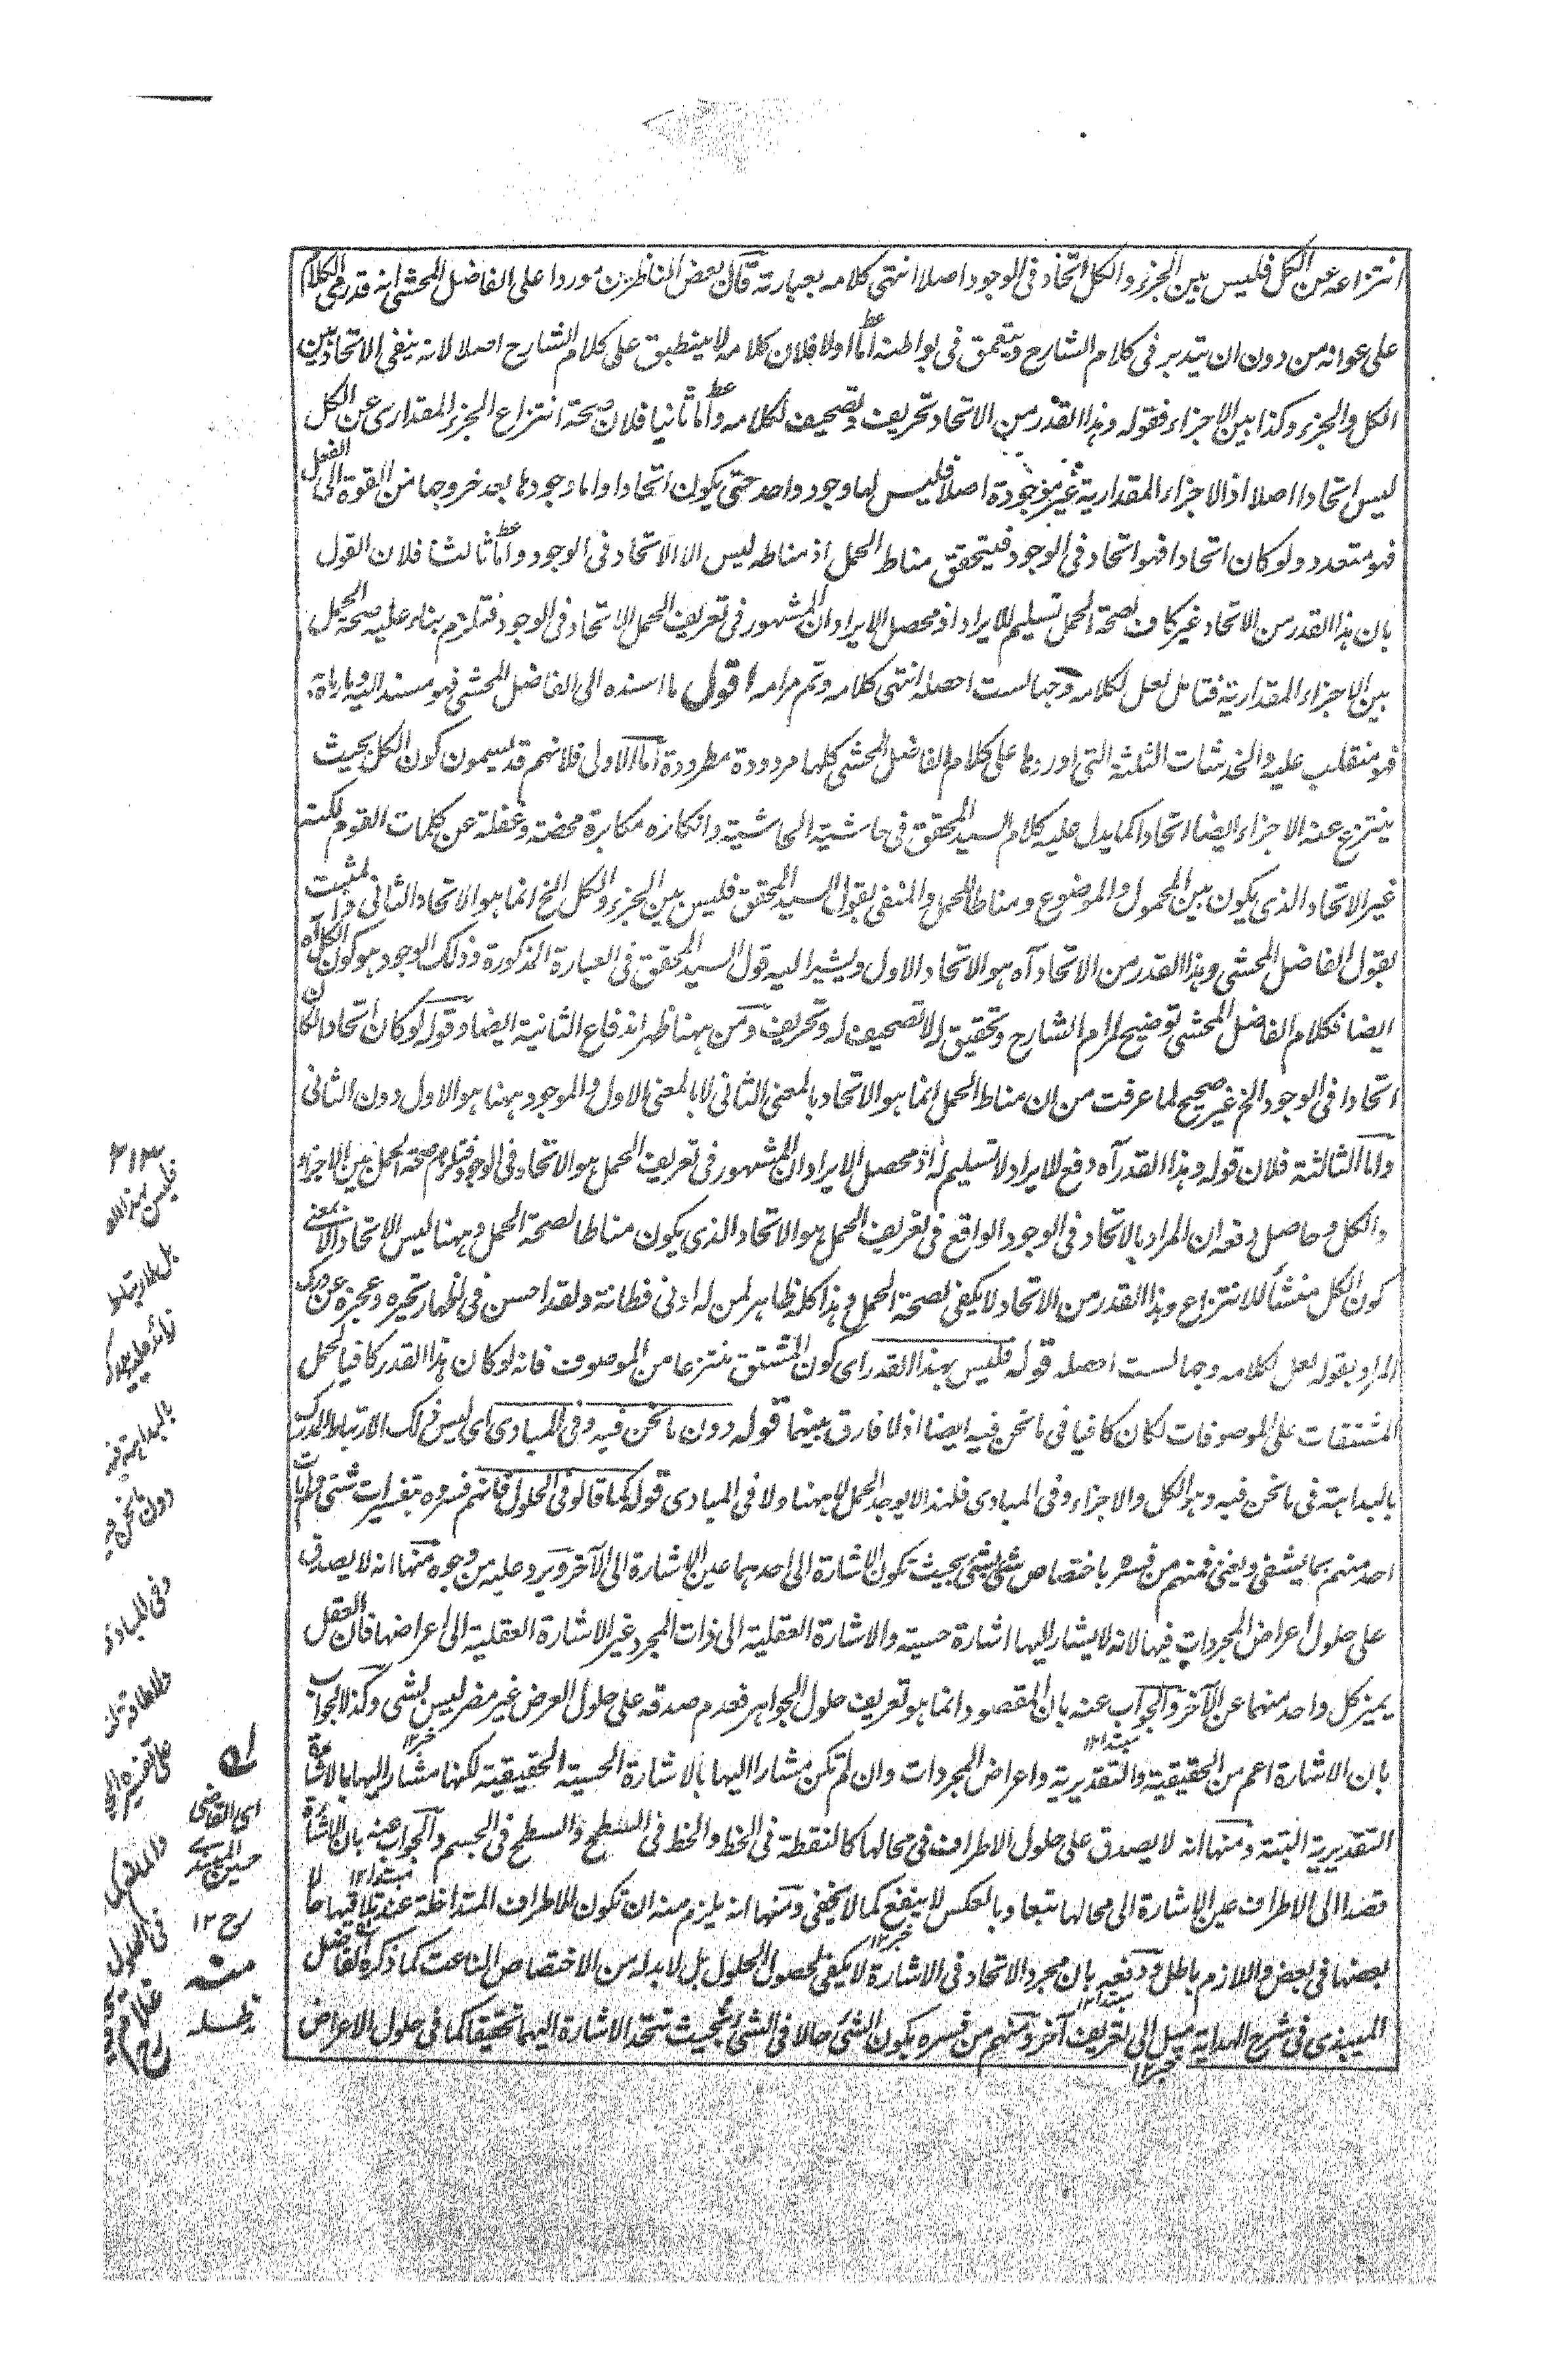 انتزاعه عن الكل فليس بين الجزء والكل اتحاد فى الوجود اصلا انتهى كلامه بعبارته قال بعض الناظرين موردا على الفاضل المحشى انه قد رمى الكلام
على عوانه من دون ان يتدبر فى كلام الشارح ويتعمق فى بواطنه اما اولا فلان كلامه لا ينطبق على كلام الشارح اصلا لانه ينفى الاتحاد بين
الكل والجزء وكذا بين الاجزاء فقوله وهذا القدر من الاتحاد تحريف وتصحيف لكلامه واما ثانيا فلان صحة انتزاع الجزء المقدارى عن الكل
ليس اتحادا اصلا اذ الاجزاء المقدارية غير موجودة اصلا فليس لها وجود واحد حتى يكون اتحادا واما وجودها بعد خروجها من القوة الى الفعل
فهو متعدد ولو كان اتحادا فهو اتحاد فى الوجود فيتحقق مناط الحمل اذ مناطه ليس الا الاتحاد فى الوجود واما ثالثا فلان القول
بان هذا القدر من الاتحاد غير كاف لصحة الحمل تسليم للايراد اذ محصل الايراد ان المشهور فى تعريف الحمل الاتحاد فى الوجود فتلزم بناء عليه صحة الحمل
بين الاجزاء المقدارية فتامل لعل لكلامه وجها لست احصله انتهى كلامه وتم مرامه اقول ما اسنده الى الفاضل المحشى فهو مسند اليه وما رماه
فهو منقلب عليه والخدشات الثلثة التى اوردها على كلام الفاضل المحشى كلها مردودة مطرودة اما الاولى فلانهم قد يسمون كون الكل بحيث
ينتزع عنه الاجزاء ايضا اتحادا كما يدل عليه كلام السيد المحقق فى حاشية الحاشية وانكاره مكابرة محضة وغفلة عن كلمات القوم لكنه
غير الاتحاد الذى يكون بين المحمول والموضوع ومناطا للحمل والمنفى بقول السيد المحقق فليس بين الجزء والكل الخ انما هو الاتحاد الثانى والمثبت
بقول الفاضل المحشى وهذا القدر من الاتحاد آه هو الاتحاد الاول ويشير اليه قول السيد المحقق فى العبارة المذكورة وذلك الوجود هو كون الكل آه
ايضا فكلام الفاضل المحشى توضيح لمرام الشارح وتحقيق له لا تصحيف له وتحريف ومن ههنا ظهر اندفاع الثانية ايضا وقوله لو كان اتحادا لكان
اتحادا فى الوجود الخ غير صحيح لما عرفت من ان مناط الحمل انما هو الاتحاد بالمعنى الثانى لا بالمعنى الاول والموجود ههنا هو الاول دون الثانى
واما الثالثة فلان قوله وهذا القدر آه دفع للايراد لا تسليم له اذ محصل الايراد ان المشهور فى تعريف الحمل هو الاتحاد فى الوجود فتلزم صحة الحمل بين الاجزاء
والكل وحاصل دفعه ان المراد بالاتحاد فى الوجود الواقع فى تعريف الحمل هو الاتحاد الذى يكون مناطا لصحة الحمل وههنا ليس الاتحاد الا بمعنى
كون الكل منشأ للانتزاع وهذا القدر من الاتحاد لا يكفى لصحة الحمل وهذا كله ظاهر لمن له ادنى فطانة ولقد احسن فى اظهار تحيره وعجزه عن درك
المراد بقوله لعل لكلامه وجها لست احصله قوله فليس بهذا القدر اى كون المشتق منتزعا من الموصوف فانه لو كان هذا القدر كافيا لحمل
المشتقات على الموصوفات لكان كافيا فى ما نحن فيه ايضا اذ لا فارق بينهما قوله دون ما نحن فيه وفى المبادى اى ليس ذلك الارتباط المدرك
بالبداهة فى ما نحن فيه وهو الكل والاجزاء وفى المبادى فلهذا لا يوجد الحمل لا ههنا ولا فى المبادى قوله كما قالوا فى الحلول فانهم فسروه بتفسيرات شتى ولم يات
احد منهم بما يشفى ويغنى فمنهم من فسره باختصاص شئ بشئ بحيث تكون الاشارة الى احدهما عين الاشارة الى الآخر ويرد عليه من وجوه منها انه لا يصدق
على حلول اعراض المجردات فيها لانه لا يشار اليها اشارة حسية والاشارة العقلية الى ذات المجرد غير الاشارة العقلية الى اعراضها فان العقل
يميز كل واحد منهما عن الآخر والجواب عنه بان المقصود انما هو تعريف حلول الجواهر فعدم صدقه على حلول العرض غير مضر ليس بشئ وكذا الجواب
بان الاشارة اعم من الحقيقية والتقديرية واعراض المجردات وان لم تكن مشارا اليها بالاشارة الحسية الحقيقية لكنها مشار اليها بالاشارة
التقديرية البتة ومنها انه لا يصدق على حلول الاطراف فى محالها كالنقطة فى الخط والخط فى السطح والسطح فى الجسم والجواب عنه بان الاشارة
قصدا الى الاطراف عين الاشارة الى محالها تبعا وبالعكس لا ينفع كما لا يخفى ومنها انه يلزم منه ان تكون الاطراف المتداخلة عند تلاقيها حالا
بعضها فى بعض واللازم باطل ودفعه بان مجرد الاتحاد فى الاشارة لا يكفى لحصول الحلول بل لا بد له من الاختصاص الناعت كما ذكره الفاضل
الميبذى فى شرح الهداية ميل الى تعريف آخر ومنهم من فسره بكون الشئ حالا فى الشئ بحيث تتحد الاشارة اليهما تحقيقا كما فى حلول الاعراض
٢١٣
دون ما نحن
وفى المبادى
فى الحلول
اى القاضى
حسين الميبذى
رح ١٢
منه
مدظله